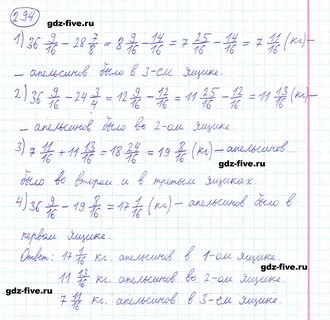 294
gdz-five.ru
1) 36 9/16 - 28 7/8 = 8 9/16 - 14/16 = 7 25/16 - 14/16 = 7 11/16 (кг) -
- апельсинов было в 3-ем ящике.
2) 36 9/16 - 24 3/4 = 12 9/16 - 12/16 = 11 25/16 - 12/16 = 11 13/16 (кг) -
- апельсинов было во 2-ом ящике.
gdz-five.ru
3) 7 11/16 + 11 13/16 = 18 24/16 = 19 8/16 (кг) - апельсинов
gdz-five.ru
было во втором и в третьем ящиках.
4) 36 9/16 - 19 8/16 = 17 1/16 (кг) - апельсинов было в
первом ящике.
gdz-five.ru
Ответ: 17 1/16 кг. апельсинов в 1-ом ящике,
11 13/16 кг. апельсинов во 2-ом ящике,
gdz-five.ru
7 11/16 кг. апельсинов в 3-ем ящике.